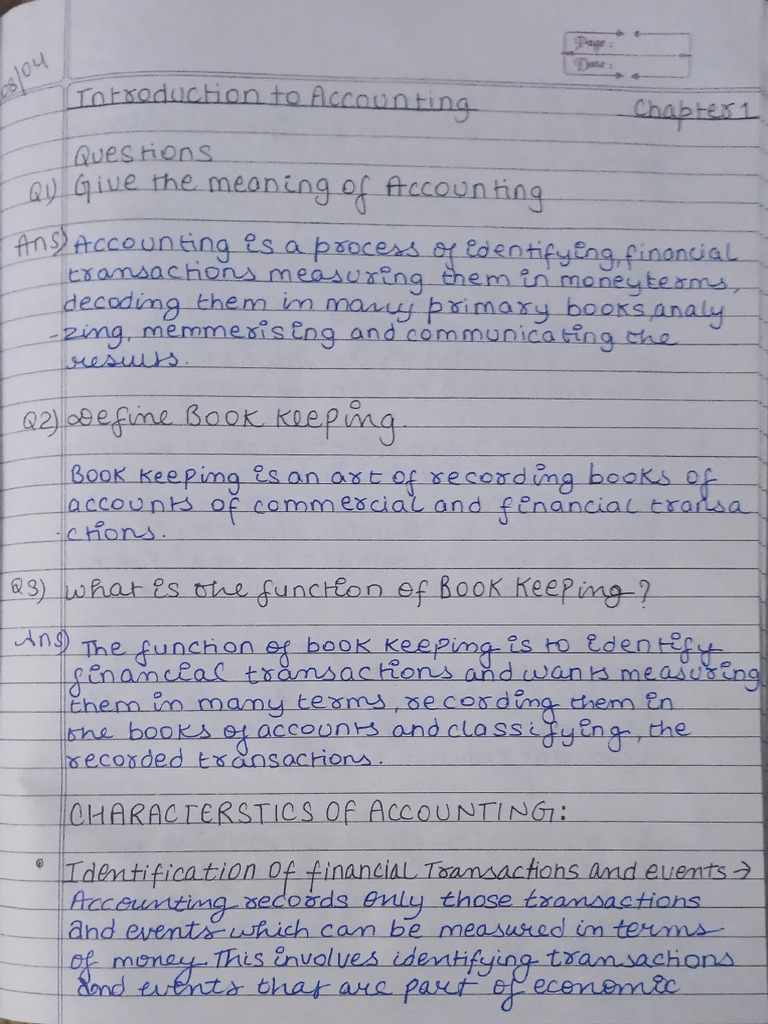 Page :
Date :
08/04
Introduction to Accounting Chapter 1
Questions
Q1) Give the meaning of Accounting
Ans) Accounting is a process of identifying, financial
transactions measuring them in money terms,
decoding them in many primary books, analy
-zing, memmerising and communicating the
results.
Q2) Define BOOK Keeping.
BOOK Keeping is an art of recording books of
accounts of commercial and financial transa
-ctions.
Q3) What is the function of BOOK Keeping?
Ans) The function of book keeping is to identify
financial transactions and wants measuring
them in many terms, recording them in
the books of accounts and classifying, the
recorded transactions.
CHARACTERSTICS OF ACCOUNTING:
• Identification Of financial Transactions and events →
Accounting records only those transactions
and events which can be measured in terms
of money. This involves identifying transactions
and events that are part of economic